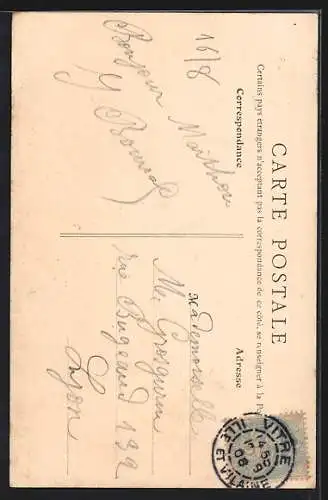 CARTE POSTALE
Certains pays étrangers n'acceptant pas la correspondance de ce côté, se renseigner à la
Correspondance
Adresse
16/8
Bonjour
Mademoiselle
M.
rue Bugeaud 192
Lyon
VITRÉ
ILLE ET VILAINE